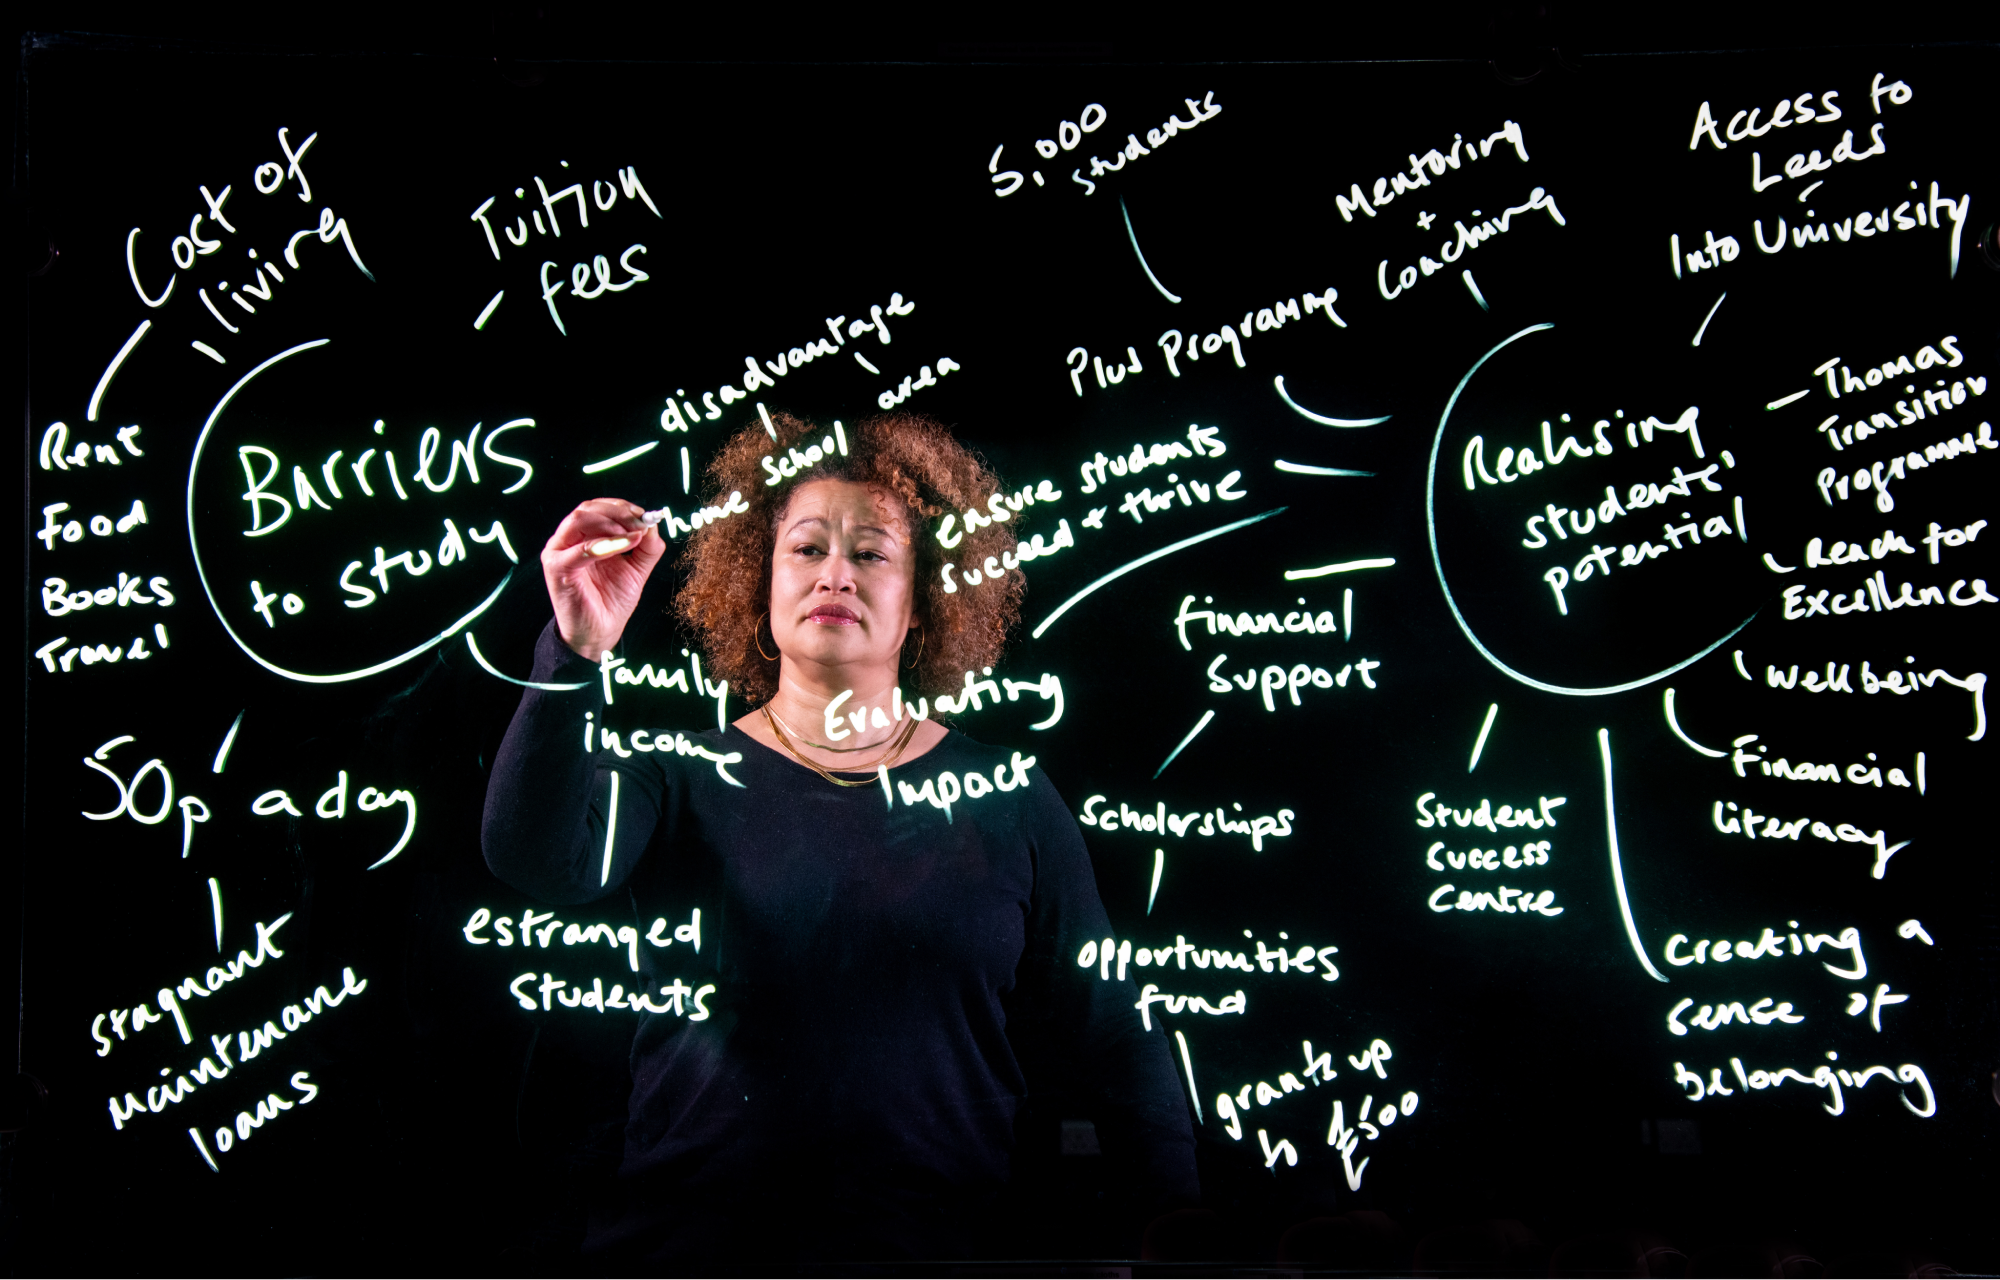 Cost of
living
Rent
Food
Books
Travel
Tuition
fees
Barriers
to study
disadvantage
home
school
area
family
income
estranged
students
50p a day
stagnant
maintenance
loans
5,000
students
Plus Programme
Mentoring
+
Coaching
Access to
Leeds
Into University
Realising
students'
potential
Thomas
Transition
Programme
Reach for
Excellence
Wellbeing
Financial
literacy
Creating a
sense of
belonging
Student
Success
Centre
ensure students
succeed + thrive
Evaluating
Impact
financial
support
Scholarships
opportunities
fund
grants up
to £500